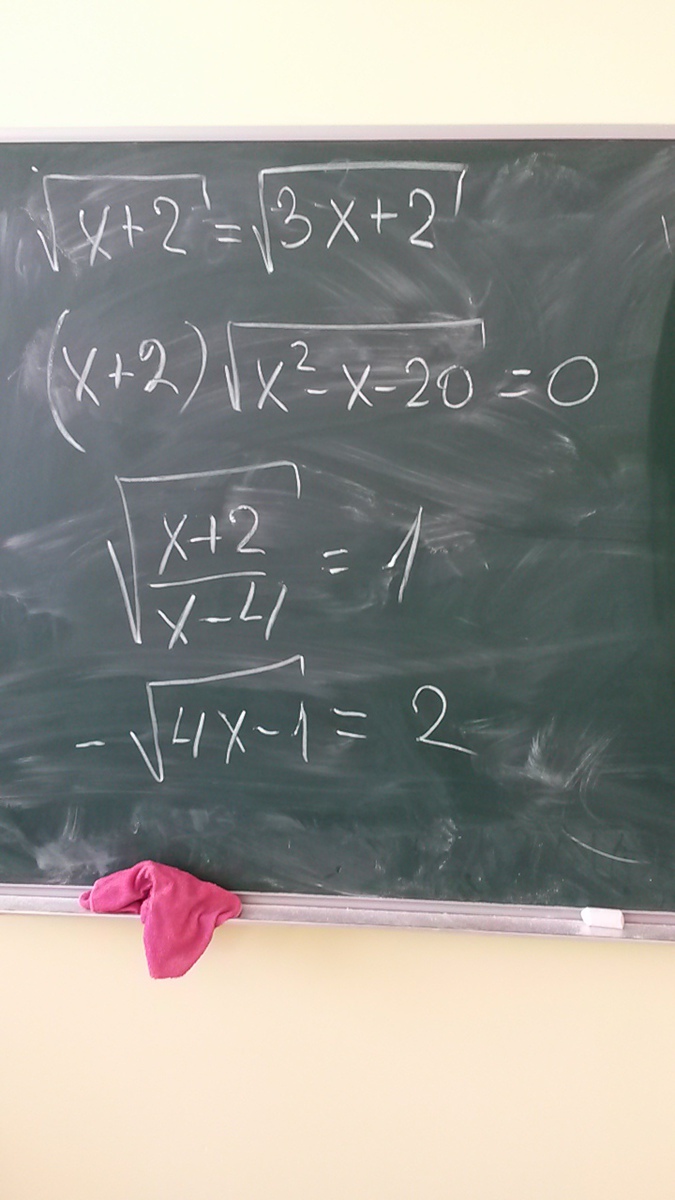 √(x+2) = √(3x+2)
(x+2)√(x²-x-20) = 0
√((x+2)/(x-4)) = 1
-√(4x-1) = 2